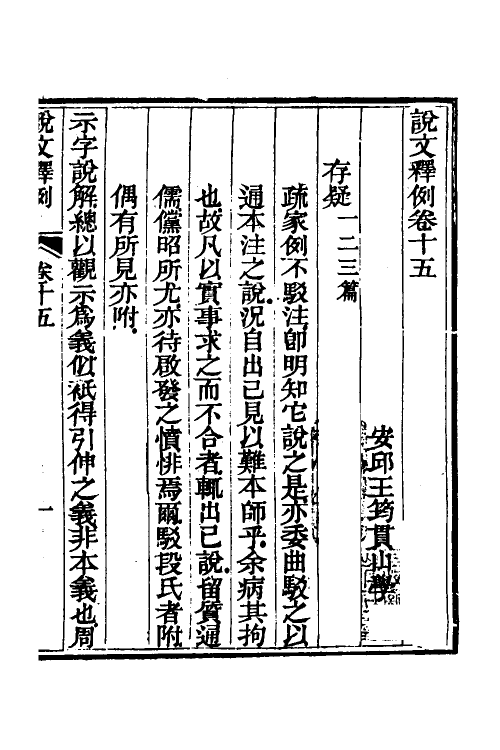 說文釋例卷十五
安邱王筠貫山學
存疑一二三篇
疏家例不駁注卽明知它說之是亦委曲駁之以
通本注之說況自出己見以難本師乎余病其拘
也故凡以實事求之而不合者輒出己說留質通
儒儻昭所尤亦待啟發之憤悱焉爾駁段氏者附
偶有所見亦咐
示字說解總以觀示爲義似衹得引伸之義非本義也周
說文釋例 卷十五 一